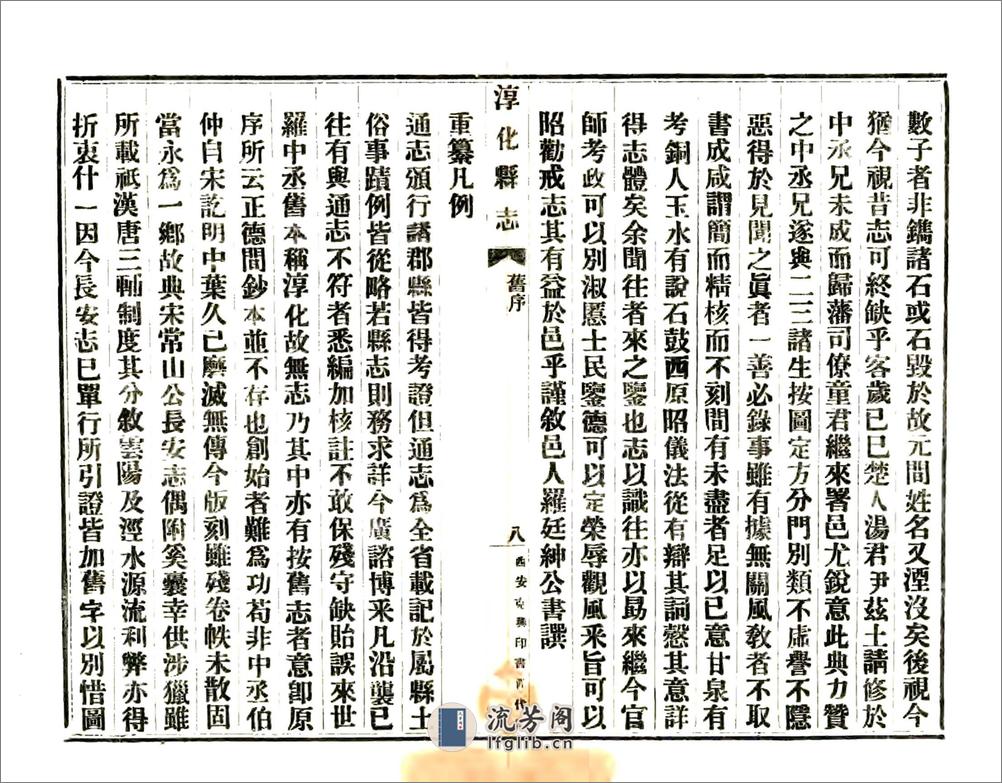 數子者非鐫諸石或石毀於故元間姓名又湮沒矣後視今
猶今視昔志可終缺乎客歲已巳楚人湯君尹茲土請修於
中丞兄未成而歸藩司僚童君繼來署邑尤銳意此典力贊
之中丞兄遂與二三諸生按圖定方分門別類不虛譽不隱
惡得於見聞之眞者一善必錄事雖有據無關風敎者不取
書成咸謂簡而精核而不刻間有未盡者足以已意甘泉有
考銅人玉水有說石鼓西原昭儀法從有辯其詞慤其意詳
得志體矣余聞往者來之鑒也志以識往亦以勗來繼今官
師考政可以別淑慝士民鑒德可以定榮辱觀風釆旨可以
昭勸戒志其有益於邑乎謹敘邑人羅廷紳公書譔
重纂凡例
通志頒行諸郡縣皆得考證但通志爲全省載記於屬縣土
俗事蹟例皆從略若縣志則務求詳今廣諮博釆凡沿襲已
往有與通志不符者悉編加核註不敢保殘守缺貽誤來世
羅中丞舊本稱淳化故無志乃其中亦有按舊志者意卽原
序所云正德間鈔本並不存也創始者難爲功苟非中丞伯
仲自宋訖明中葉久已靡滅無傳今版刻雖殘卷帙未散固
當永爲一鄉故典宋常山公長安志偶附奚囊幸供涉獵雖
所載祇漢唐三輔制度其分敘雲陽及涇水源流利弊亦得
折衷什一因今長安志已單行所引證皆加舊字以別惜圖
淳化縣志
舊序
八
西安克興印書館代
流芳阁
lfglib.cn